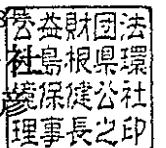 公益財団法
社
人島根県環
彦
境保健公社
理事長之印